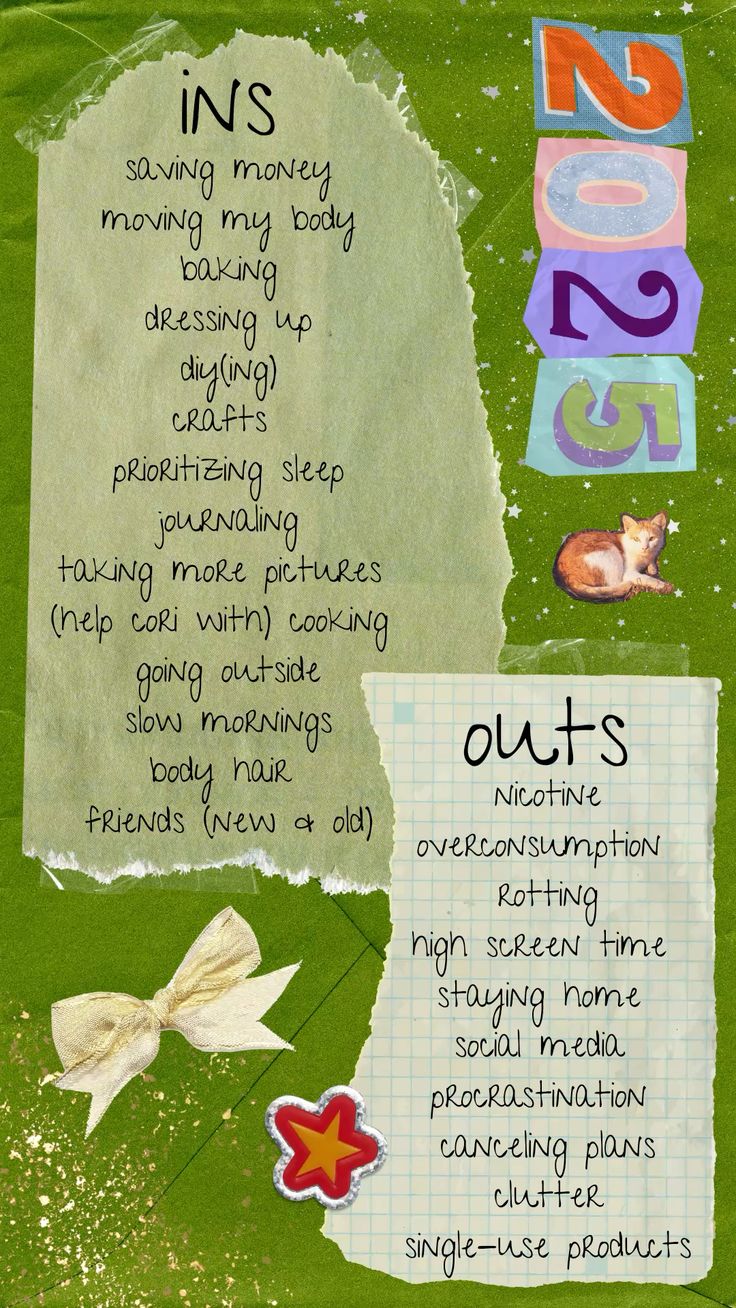 ins
saving money
moving my body
baking
dressing up
diy(ing)
crafts
prioritizing sleep
journaling
taking more pictures
(help cori with) cooking
going outside
slow mornings
body hair
friends (new & old)
2
0
2
5
outs
nicotine
overconsumption
rotting
high screen time
staying home
social media
procrastination
canceling plans
clutter
single-use products